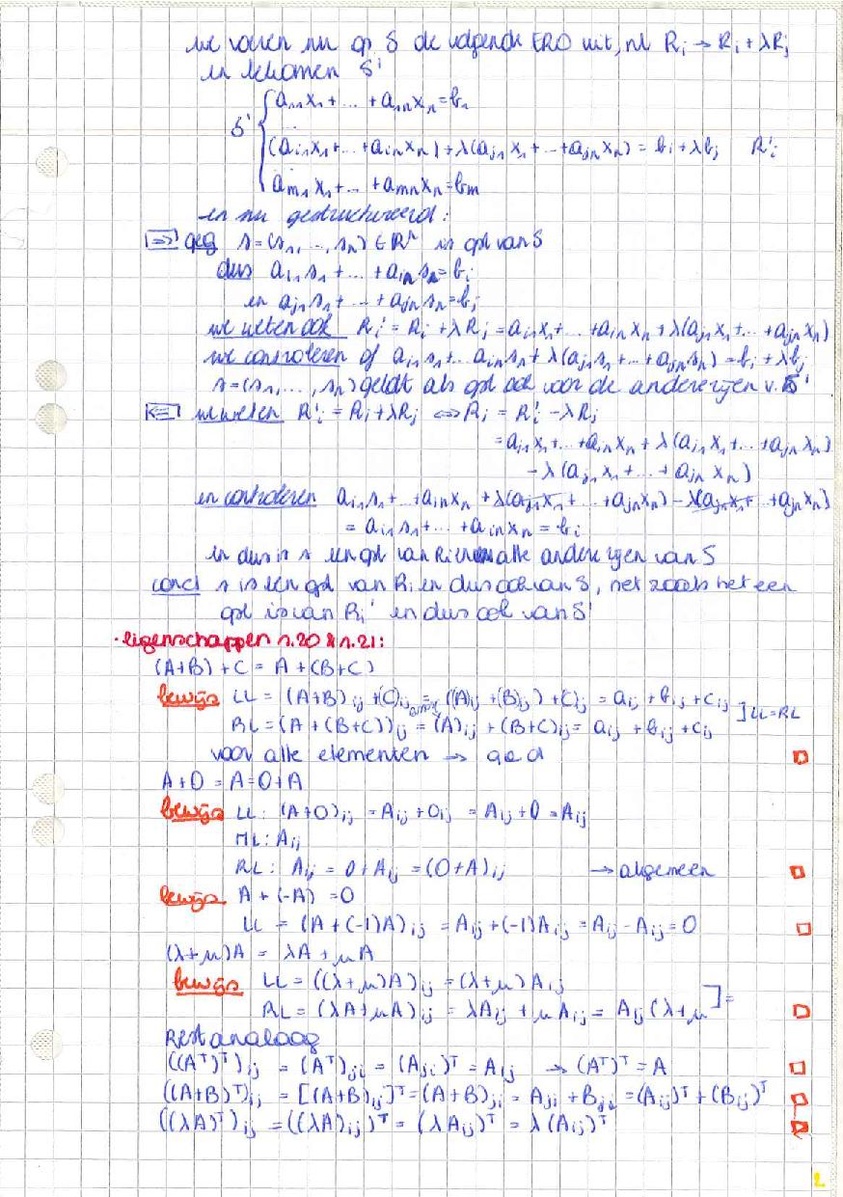 we voeren nu op S de volgende ERO uit, nl Ri → Ri + λRj
en bekomen S'
S' { a11x1 + ... + a1nxn = b1
...
(ai1x1 + ... + ainxn) + λ(aj1x1 + ... + ajnxn) = bi + λbj R'i
am1x1 + ... + amnxn = bm
en nu gestructureerd:
[=>] geg s = (s1, ..., sn) ∈ ℝⁿ is opl van S
dus ai1s1 + ... + ainsn = bi
en aj1s1 + ... + ajnsn = bj
we weten ook Ri' = Ri + λRj = ai1x1 + ... + ainxn + λ(aj1x1 + ... + ajnxn)
we controleren of ai1s1 + ... ainsn + λ(aj1s1 + ... + ajnsn) = bi + λbj
s = (s1, ..., sn) geldt als opl ook voor de andere rijen v. S'
[<=] we weten R'i = Ri + λRj ⇔ Ri = R'i - λRj
= ai1x1 + ... + ainxn + λ(aj1x1 + ... + ajnxn)
- λ(aj1x1 + ... + ajnxn)
en controleren ai1s1 + ... + ainxn + λ(aj1x1 + ... + ajnxn) - λ(aj1x1 + ... + ajnxn)
= ai1s1 + ... + ainxn = bi
en dus is s een opl van Ri en alle andere rijen van S
concl s is een opl van Ri en dus ook van S, net zoals het een
opl is van Ri' en dus ook van S'
· eigenschappen 1.20 & 1.21:
(A+B) + C = A + (B+C)
bewijs LL = (A+B)ij + (C)ij = ((A)ij + (B)ij) + (C)ij = aij + bij + cij ] LL = RL
RL = (A + (B+C))ij = (A)ij + (B+C)ij = aij + bij + cij
voor alle elementen → qed □
A + O = A = O + A
bewijs LL: (A+O)ij = Aij + Oij = Aij + 0 = Aij
ML: Aij
RL: Aij = 0 + Aij = (O+A)ij → algemeen □
bewijs A + (-A) = O
LL = (A + (-1)A)ij = Aij + (-1)Aij = Aij - Aij = 0 □
(λ+μ)A = λA + μA
bewijs LL = ((λ+μ)A)ij = (λ+μ)Aij ] =
RL = (λA + μA)ij = λAij + μAij = Aij(λ+μ □
Rest analoog
((Aᵀ)ᵀ)ij = (Aᵀ)ji = (Aji)ᵀ = Aij → (Aᵀ)ᵀ = A □
((A+B)ᵀ)ij = [(A+B)ij]ᵀ = (A+B)ji = Aji + Bji = (Aij)ᵀ + (Bij)ᵀ □
((λA)ᵀ)ij = ((λA)ij)ᵀ = (λAij)ᵀ = λ(Aij)ᵀ □
2